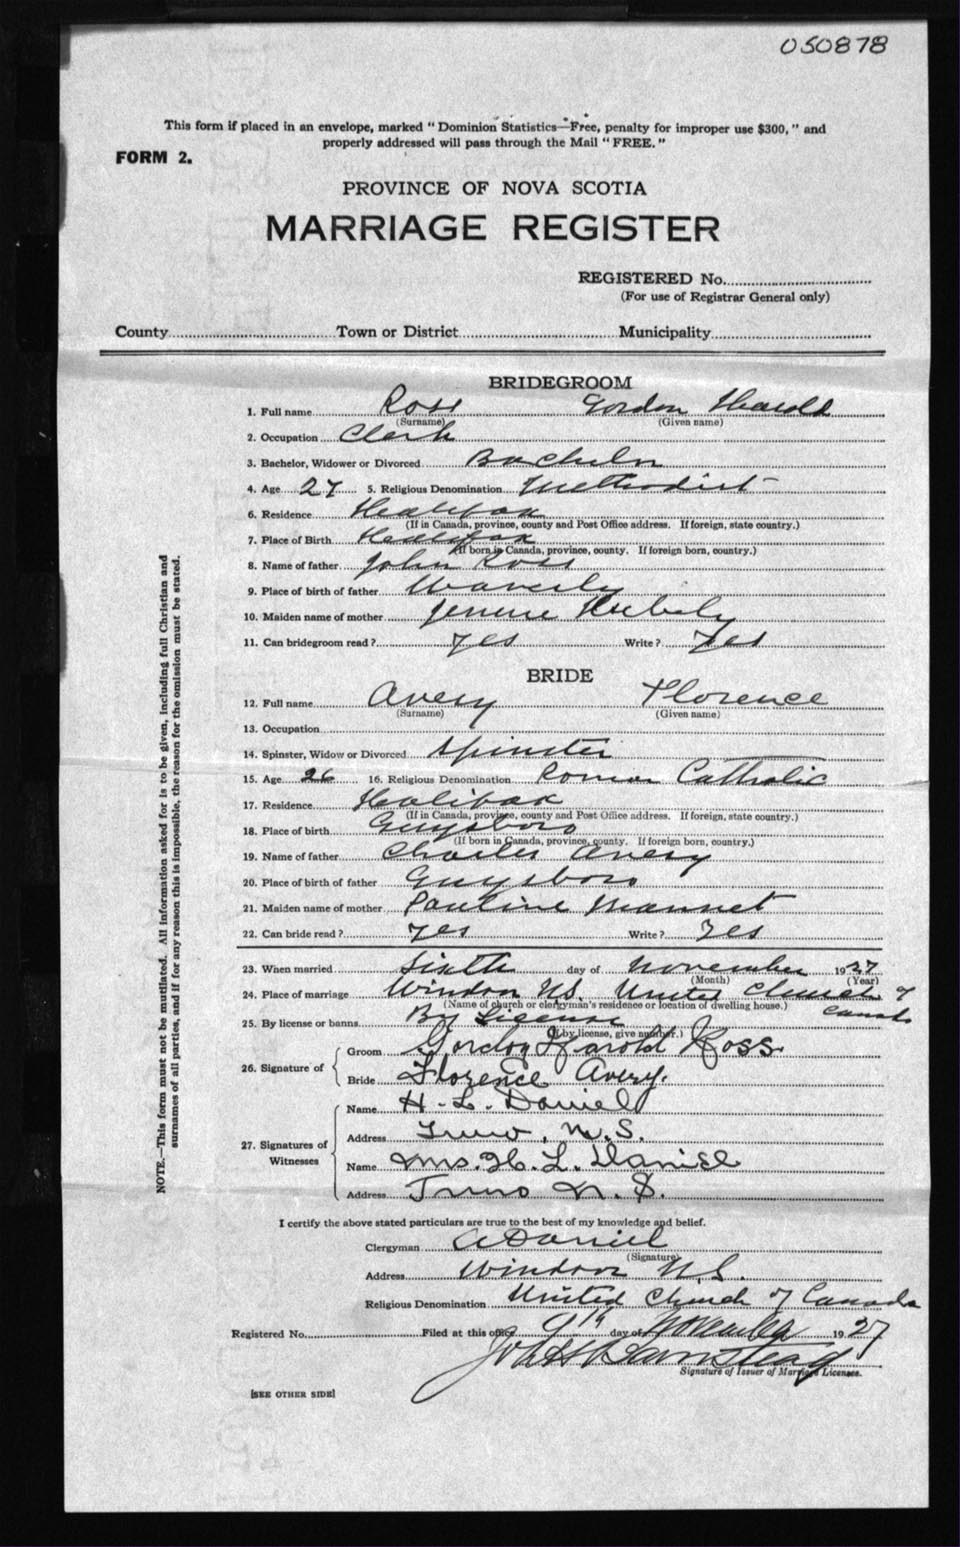 050878
This form if placed in an envelope, marked "Dominion Statistics—Free, penalty for improper use $300," and
properly addressed will pass through the Mail "FREE."
FORM 2.
PROVINCE OF NOVA SCOTIA
MARRIAGE REGISTER
REGISTERED No.
(For use of Registrar General only)
County Town or District Municipality
BRIDEGROOM
1. Full name Ross Gordon Harold
(Surname) (Given name)
2. Occupation Clerk
3. Bachelor, Widower or Divorced Bachelor
4. Age 27 5. Religious Denomination Methodist
6. Residence Halifax
(If in Canada, province, county and Post Office address. If foreign, state country.)
7. Place of Birth Halifax
(If born in Canada, province, county. If foreign born, country.)
8. Name of father John Ross
9. Place of birth of father Waverly
10. Maiden name of mother
11. Can bridegroom read? yes Write? Yes
BRIDE
12. Full name Avery Florence
(Surname) (Given name)
13. Occupation
14. Spinster, Widow or Divorced Spinster
15. Age 26 16. Religious Denomination Roman Catholic
17. Residence Halifax
(If in Canada, province, county and Post Office address. If foreign, state country.)
18. Place of birth Guysboro
(If born in Canada, province, county. If foreign born, country.)
19. Name of father Charles Avery
20. Place of birth of father Guysboro
21. Maiden name of mother Pauline Mannet
22. Can bride read? yes Write? Yes
23. When married Sixth day of November 1927
(Month) (Year)
24. Place of marriage Windsor N.S. United Church of
Canada
(Name of church or clergyman's residence or location of dwelling house.)
25. By license or banns By License
(If by license, give number.)
26. Signature of
Groom Gordon Harold Ross
Bride Florence Avery.
27. Signatures of
Witnesses
Name H. L. Daniel
Address Truro, N.S.
Name Mrs. H. L. Daniel
Address Truro N. S.
I certify the above stated particulars are true to the best of my knowledge and belief.
Clergyman A Daniel
(Signature)
Address Windsor N.S.
Religious Denomination United Church of Canada
Registered No. Filed at this office 9th day of November 1927
Signature of Issuer of Marriage Licenses.
[SEE OTHER SIDE]
NOTE.—This form must not be mutilated. All information asked for is to be given, including full Christian and
surnames of all parties, and if for any reason this is impossible, the reason for the omission must be stated.